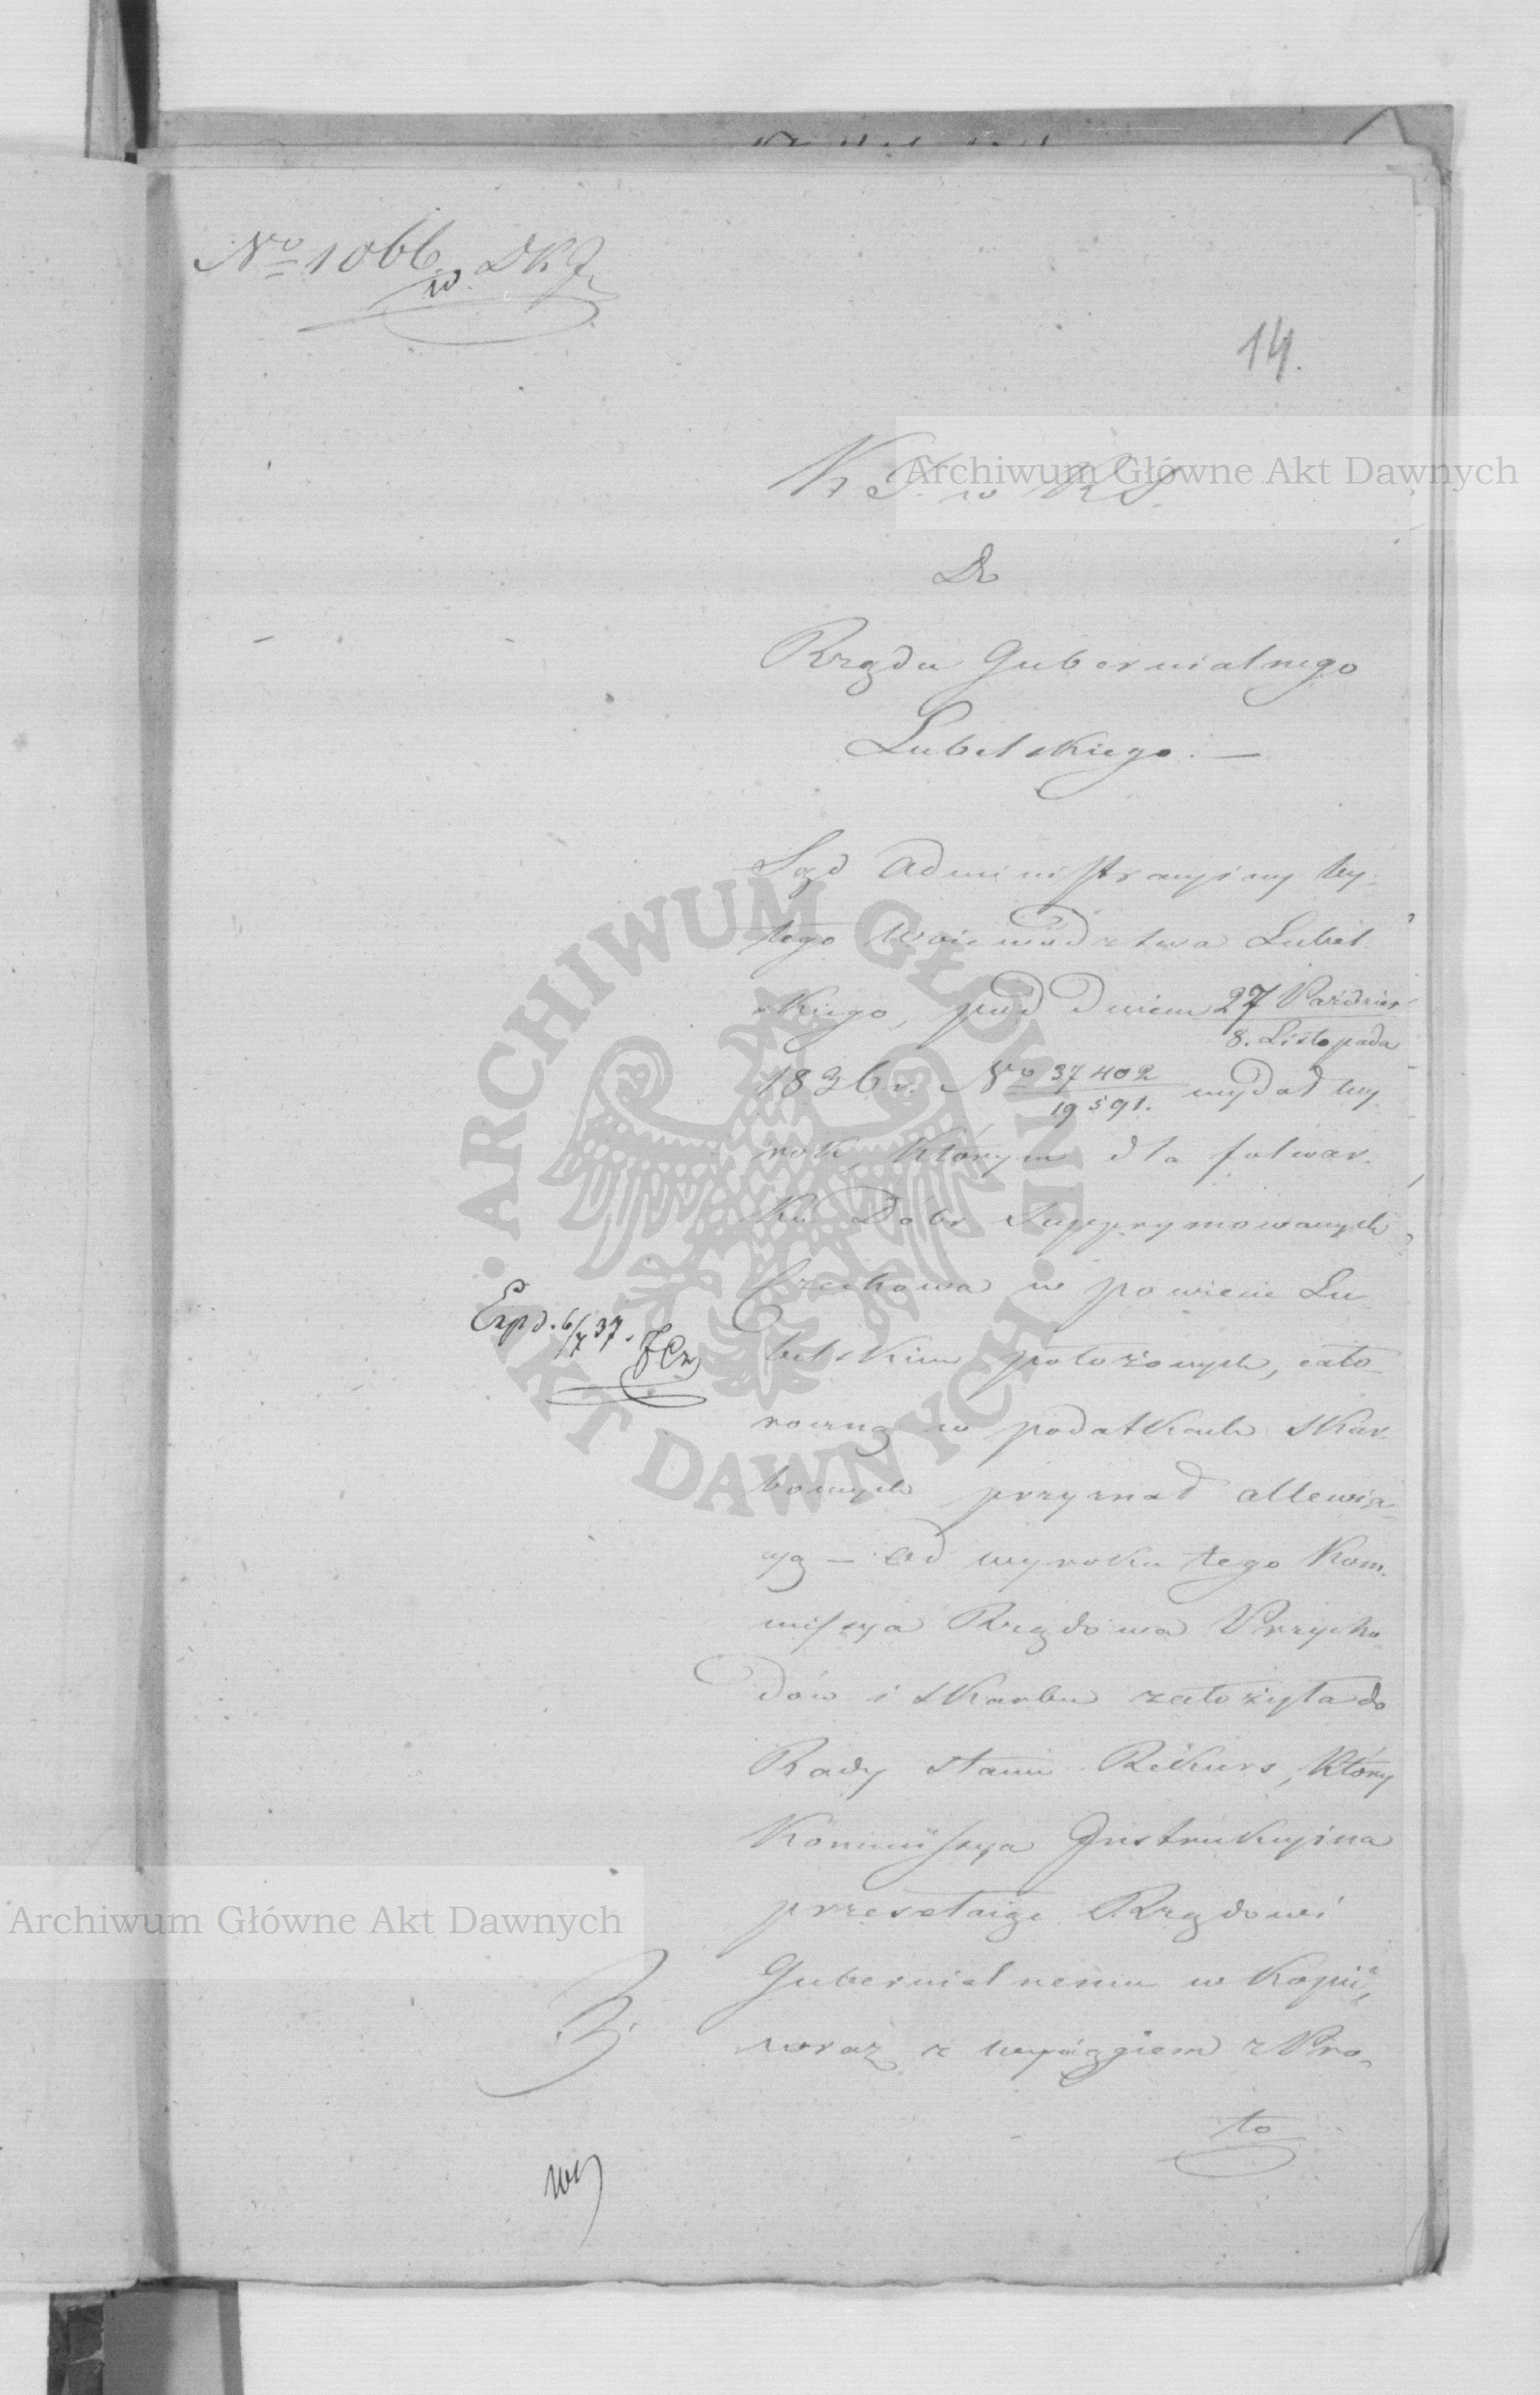 No 1066 w DKJ
14.
K J. w RS.
Do
Rządu Gubernialnego
Lubelskiego. —
Sąd Administracyiny by-
łego Woiewództwa Lubel-
skiego, pod dniem 27 Paździer
8. Listopada
1836 r. No 37402
19591. wydał wy-
rok, którym dla folwar-
ku Dóbr Suprymowanych
Czechowa w powiecie Lu
belskim położonych, cało
roczną w podatkach skar-
bowych przyznał allewia-
cyą — Od wyroku tego Kom-
missya Rządowa Przycho-
dów i Skarbu założyła do
Rady Stanu Rekurs, który
Kommissya Instrukcyina
przesełaiąc Rządowi
Gubernialnemu w Kopii,
wraz z wyciągiem z Pro-
to
Expd. 6/7 37.
Archiwum Główne Akt Dawnych
Archiwum Główne Akt Dawnych
ARCHIWUM GŁÓWNE
AKT DAWNYCH